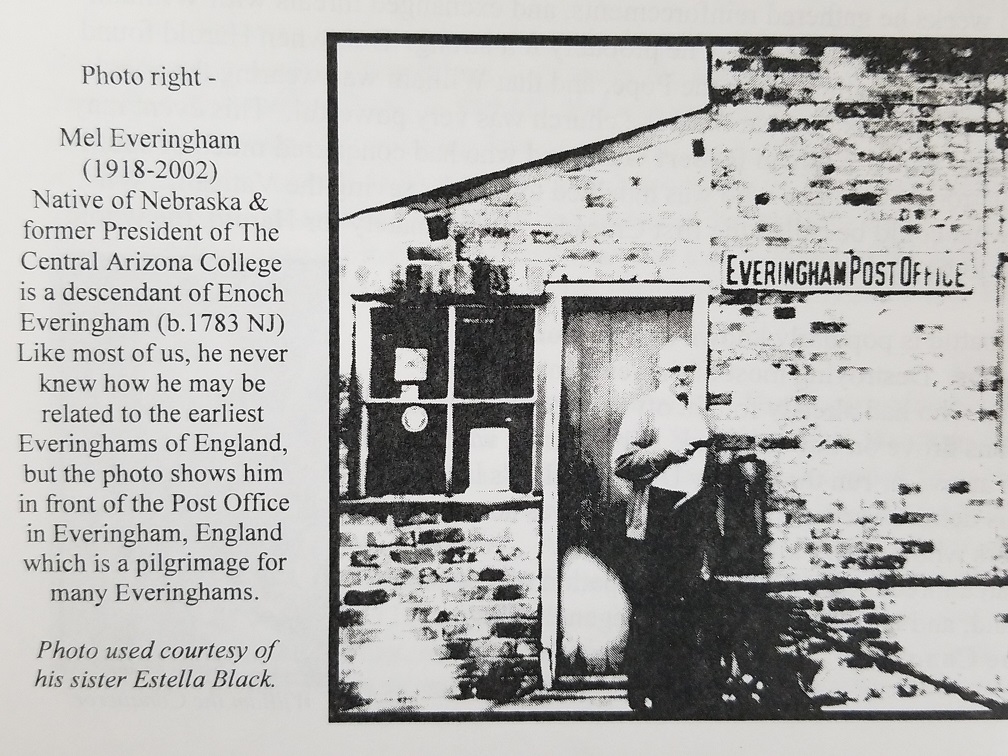 Photo right -
Mel Everingham
(1918-2002)
Native of Nebraska &
former President of The
Central Arizona College
is a descendant of Enoch
Everingham (b.1783 NJ)
Like most of us, he never
knew how he may be
related to the earliest
Everinghams of England,
but the photo shows him
in front of the Post Office
in Everingham, England
which is a pilgrimage for
many Everinghams.
Photo used courtesy of
his sister Estella Black.
EVERINGHAM POST OFFICE